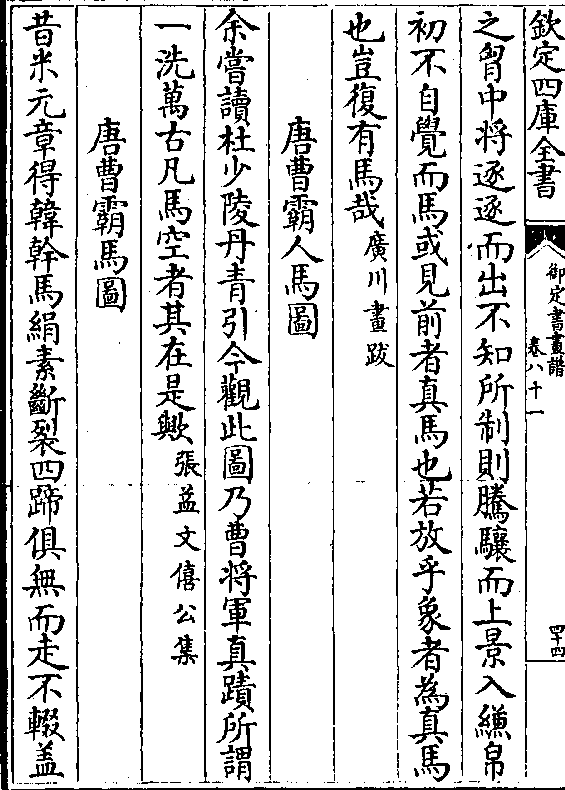 欽定四庫全書
御定書畫譜
卷八十一
四十四
之胷中将逐逐而出不知所制則騰驤而上景入縑帛
初不自覺而馬或見前者真馬也若放乎象者為真馬
也豈復有馬哉廣川畫跋
唐曹霸人馬圖
余嘗讀杜少陵丹青引今觀此圖乃曹将軍真蹟所謂
一洗萬古凡馬空者其在是歟張益文僖公集
唐曹霸馬圖
昔米元章得韓幹馬絹素斷裂四蹄俱無而走不輟盖